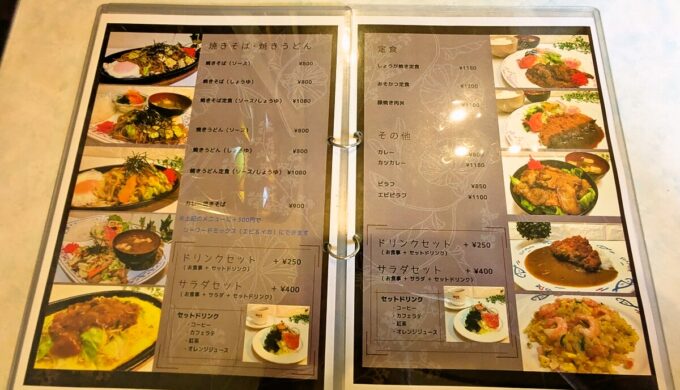 焼きそば・焼きうどん
焼きそば（ソース） ¥800
焼きそば（しょうゆ） ¥800
焼きそば定食（ソース/しょうゆ） ¥1080
焼きうどん（ソース） ¥800
焼きうどん（しょうゆ） ¥800
焼きうどん定食（ソース/しょうゆ） ¥1080
カレー焼きそば ¥900
※上記のメニューに+300円で
シーフードミックス（エビ&イカ）にできます
ドリンクセット + ¥250
（お食事 + セットドリンク）
サラダセット + ¥400
（お食事 + サラダ + セットドリンク）
セットドリンク
・コーヒー
・カフェラテ
・紅茶
・オレンジジュース
定食
しょうが焼き定食 ¥1180
おろかつ定食
豚焼き肉丼
その他
カレー
カツカレー ¥1180
ピラフ ¥850
エビピラフ ¥1100
ドリンクセット + ¥250
（お食事 + セットドリンク）
サラダセット + ¥400
（お食事 + サラダ + セットドリンク）
セットドリンク
・コーヒー
・カフェラテ
・紅茶
・オレンジジュース